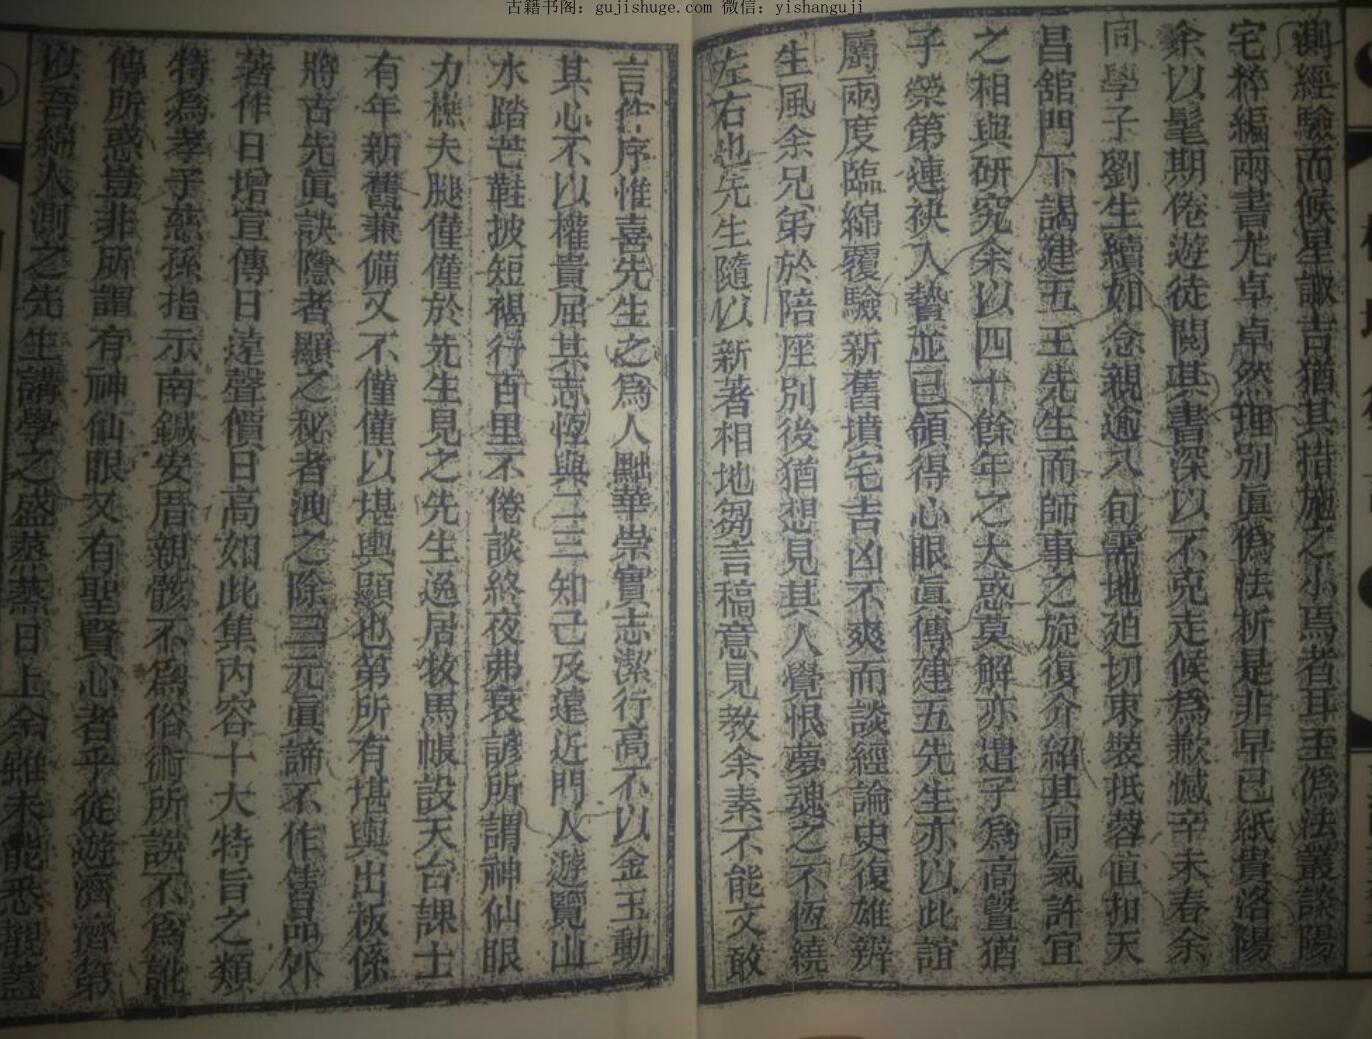 古籍书阁：gujishuge.com 微信：yishanguji
測經驗而候星諏吉猶其措施之小焉者耳至僞法叢談陽
宅粹編兩書尤卓卓然押別眞僞法析是非早已紙貴洛陽
余以髦期倦遊徒閱其書深以不克走候爲歉憾辛未春余
同學子劉生續如念親逾八旬需地廹切束裝抵蓉值扣天
昌舘門下謁建五王先生而師事之旋復介紹其同氣許宜
之相與研究余以四十餘年之大惑莫解亦遣子爲高暨猶
子榮第連袂入贄並已領得心眼眞傳建五先生亦以此誼
屬兩度臨綿覆驗新舊墳宅吉凶不爽而談經論史復雄辨
生風余兄弟於陪座別後猶想見其人覺恨夢魂之不恆繞
左右也先生隨以新著相地芻言稿意見教余素不能文敢
言作序惟喜先生之爲人黜華崇實志潔行高不以金玉動
其心不以權貴屈其志恆與二三知己及遠近門人遊覽山
水踏芒鞋披短褐行百里不倦談終夜弗衰諺所謂神仙眼
力樵夫腿僅僅於先生見之先生逸居牧馬帳設天台課士
有年新舊兼備又不僅僅以堪輿顯也第所有堪輿出板係
將古先眞訣隱者顯之秘者洩之除三元眞諦不作售品外
著作日增宣傳日遠聲價日高如此集內容十大特旨之類
特爲孝子慈孫指示南鍼安厝親骸不爲俗術所誤不爲訛
傳所惑豈非所謂有神仙眼又有聖賢心者乎從遊濟濟第
以吾綿人測之先生講學之盛蒸蒸日上余雖未能悉覩蓋